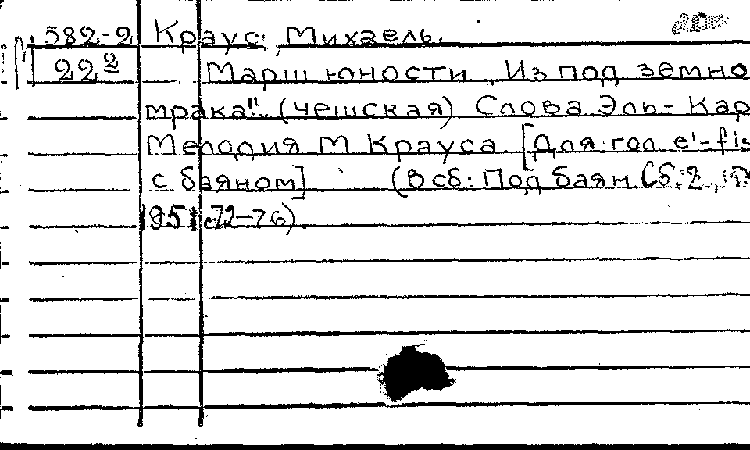 582-2 Краус, Михаель.
22² Марш юности. „Из под земно
мрака". (чешская) Слова Эль-Кар
Мелодия М Крауса. [Для гол. e'-fis
с баяном] (В сб: Под баян. Сб. 2.,
195 с 72-76).